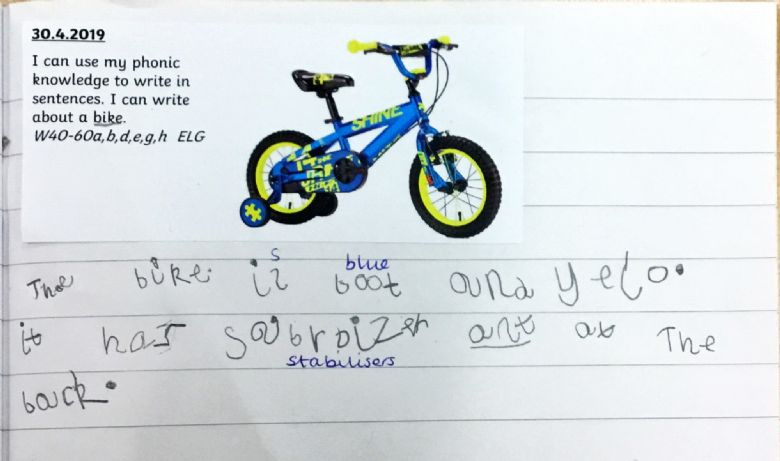 30.4.2019
I can use my phonic
knowledge to write in
sentences. I can write
about a bike.
W40-60a,b,d,e,g,h ELG
SHINE
s blue
The bike is boot and yelo.
it has at at The
stabilisers
back.